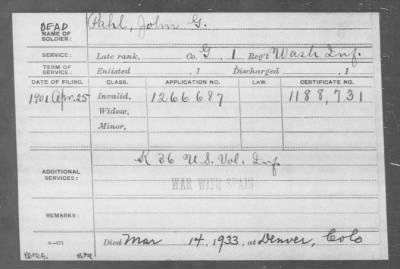 DEAD Pahl, John G.
NAME OF SOLDIER:
SERVICE: Late rank, Co. G, 1 Reg't Wash Inf.
TERM OF SERVICE: Enlisted , 1 Discharged , 1
DATE OF FILING. CLASS. APPLICATION NO. LAW. CERTIFICATE NO.
1901 Apr. 25 Invalid, 1266687 1188,731
Widow,
Minor,
ADDITIONAL SERVICES: K 36 U.S. Vol. Inf.
WAR WITH SPAIN
REMARKS:
Died Mar 14, 1933, at Denver, Colo